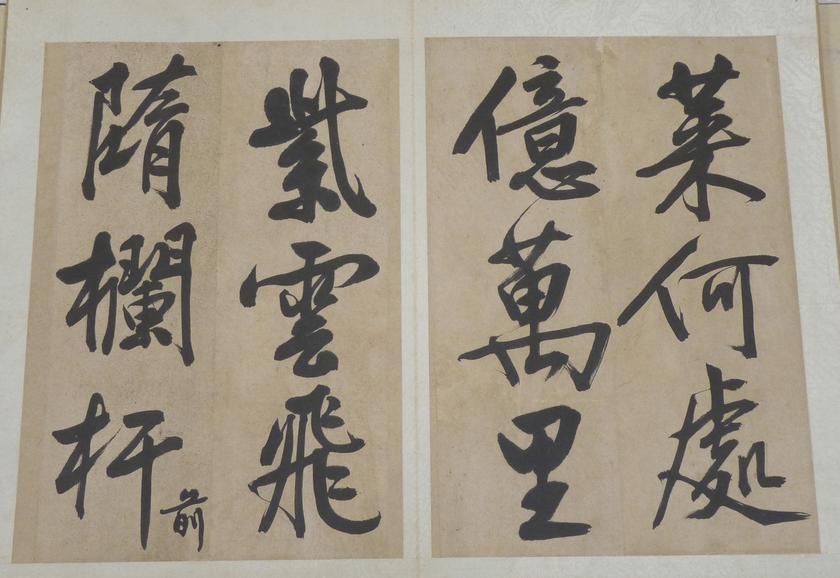 菜何處
億萬里
紫雲飛
隋欄杆前